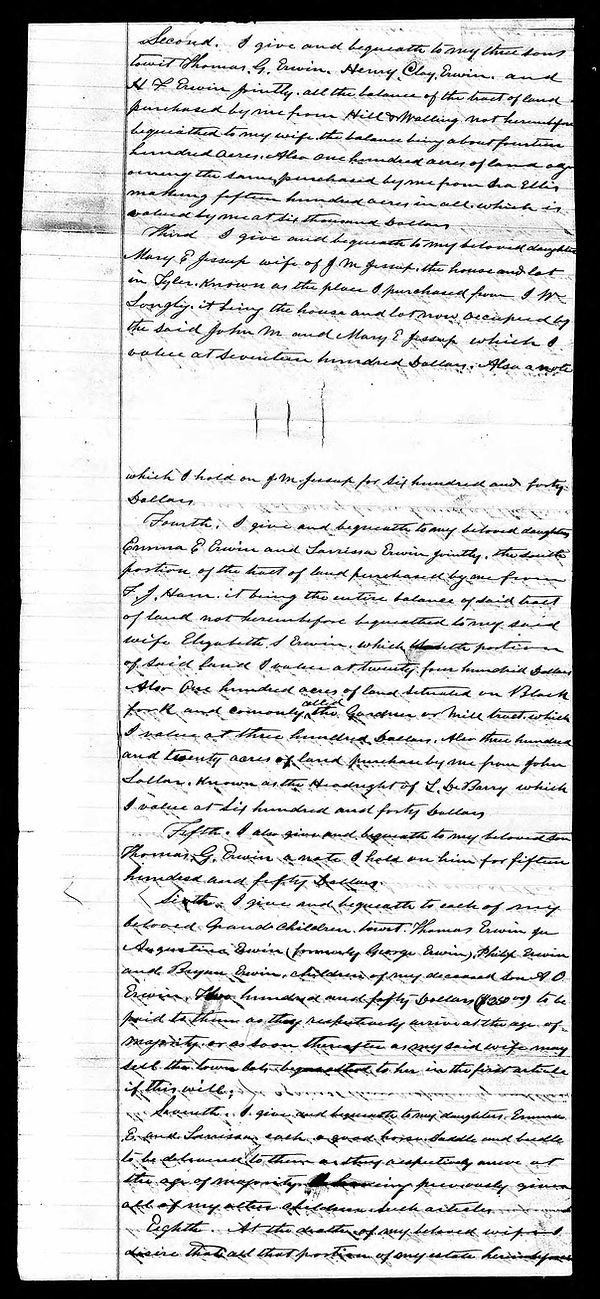 Second. I give and bequeath to my three sons
towit Thomas. G. Erwin. Henry Clay Erwin. and
H F Erwin jointly. all the balance of the tract of land
purchased by me from Hill & Walling not hereinbefore
bequeathed to my wife. the balance being about fourteen
hundred acres. Also one hundred acres of land adj-
oining the same, purchased by me from Ira Ellis
making fifteen hundred acres in all. which is
valued by me at Six thousand Dollars
Third I give and bequeath to my beloved daughter
Mary E Jessup wife of J M Jessup. the house and lot
in Tyler. Known as the place I purchased from J W
Longly. it being the house and lot now occupied by
the said John M and Mary E Jessup which I
value at Seventeen hundred Dollars. Also a note
which I hold on J M Jessup for Six hundred and forty
Dollars
Fourth. I give and bequeath to my beloved daughters
Emma E Erwin and Larrissa Erwin jointly. the south
portion of the tract of land purchased by me from
F. J. Ham. it being the entire balance of said tract
of land not hereinbefore bequeathed to my said
wife Elizabeth S Erwin. which south portion
of said land I value at twenty four hundred Dollars
Also One hundred acres of land situated on Black
fork and comonly called the Gardner or Mill tract. which
I value at three hundred Dollars. Also three hundred
and twenty acres of land purchase by me from John
Lollar. Known as the Headright of L. DeBerry which
I value at Six hundred and forty Dollars
Fifth. I also give and bequeath to my beloved son
Thomas. G. Erwin a note I hold on him for fifteen
hundred and fifty Dollars.
Sixth. I give and bequeath to each of my
beloved Grand Children. towit. Thomas Erwin
Augustina Erwin (formerly George Erwin), Philip Erwin
and Bryan Erwin. children of my deceased son A. O
Erwin. Two hundred and fifty Dollars ($250 00) to be
paid to them as they respectively arrive at the age of
majority. or as soon thereafter as my said wife may
sell the town lots bequeathed to her in the first article
if this will;
Seventh. I give and bequeath to my daughters. Emma
E. and Larrissa each a good horse. Saddle and bridle
to be delivered to them as they respectively arrive at
the age of majority having previously given
all of my other children such articles
Eighth. At the death of my beloved wife I
desire that all that portion of my estate